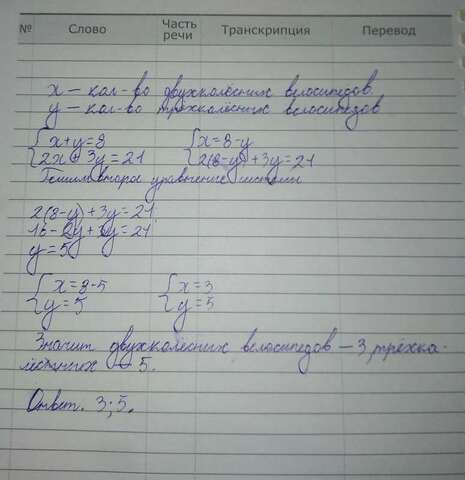 № Слово Часть речи Транскрипция Перевод
x – кол-во двухколёсних велосипедов
y – кол-во трёхколёсних велосипедов
{x+y=8 {x=8-y
{2x+3y=21 {2(8-y)+3y=21
Решим второе уравнение системы
2(8-y)+3y=21
16-2y+3y=21
y=5
{x=8-5 {x=3
{y=5 {y=5
Значит двухколёсних велосипедов – 3, трёхко-
лёсних – 5.
Ответ. 3; 5.